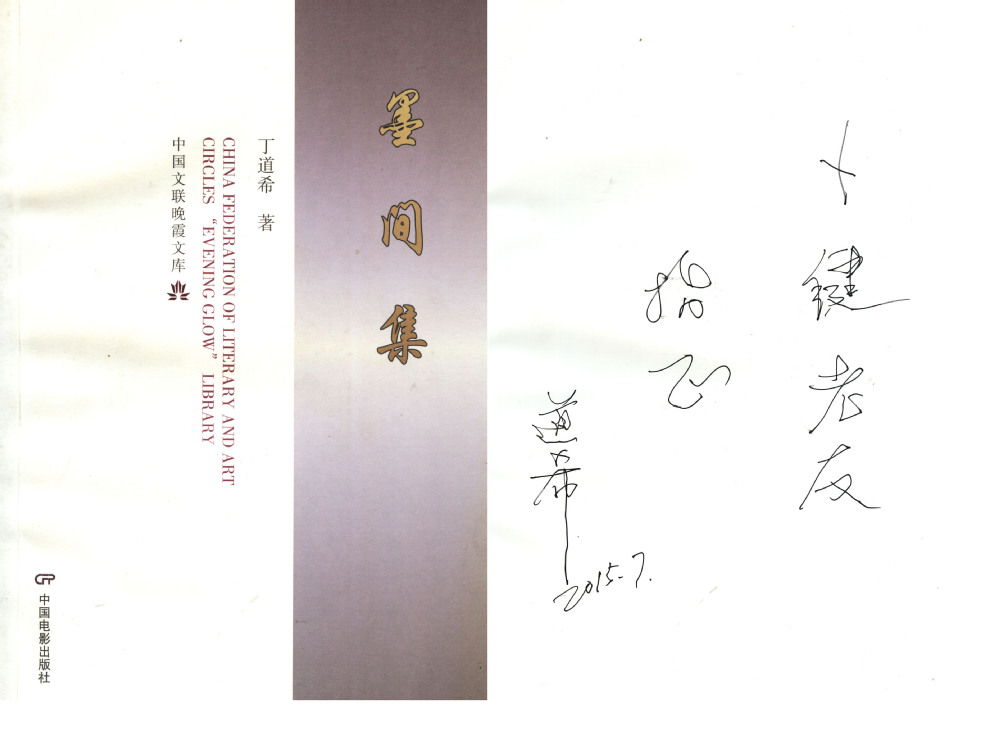 墨间集
丁道希 著
CHINA FEDERATION OF LITERARY AND ART
CIRCLES “EVENING GLOW” LIBRARY
中国文联晚霞文库
中国电影出版社
卜键老友
指正
道希
2015.7.